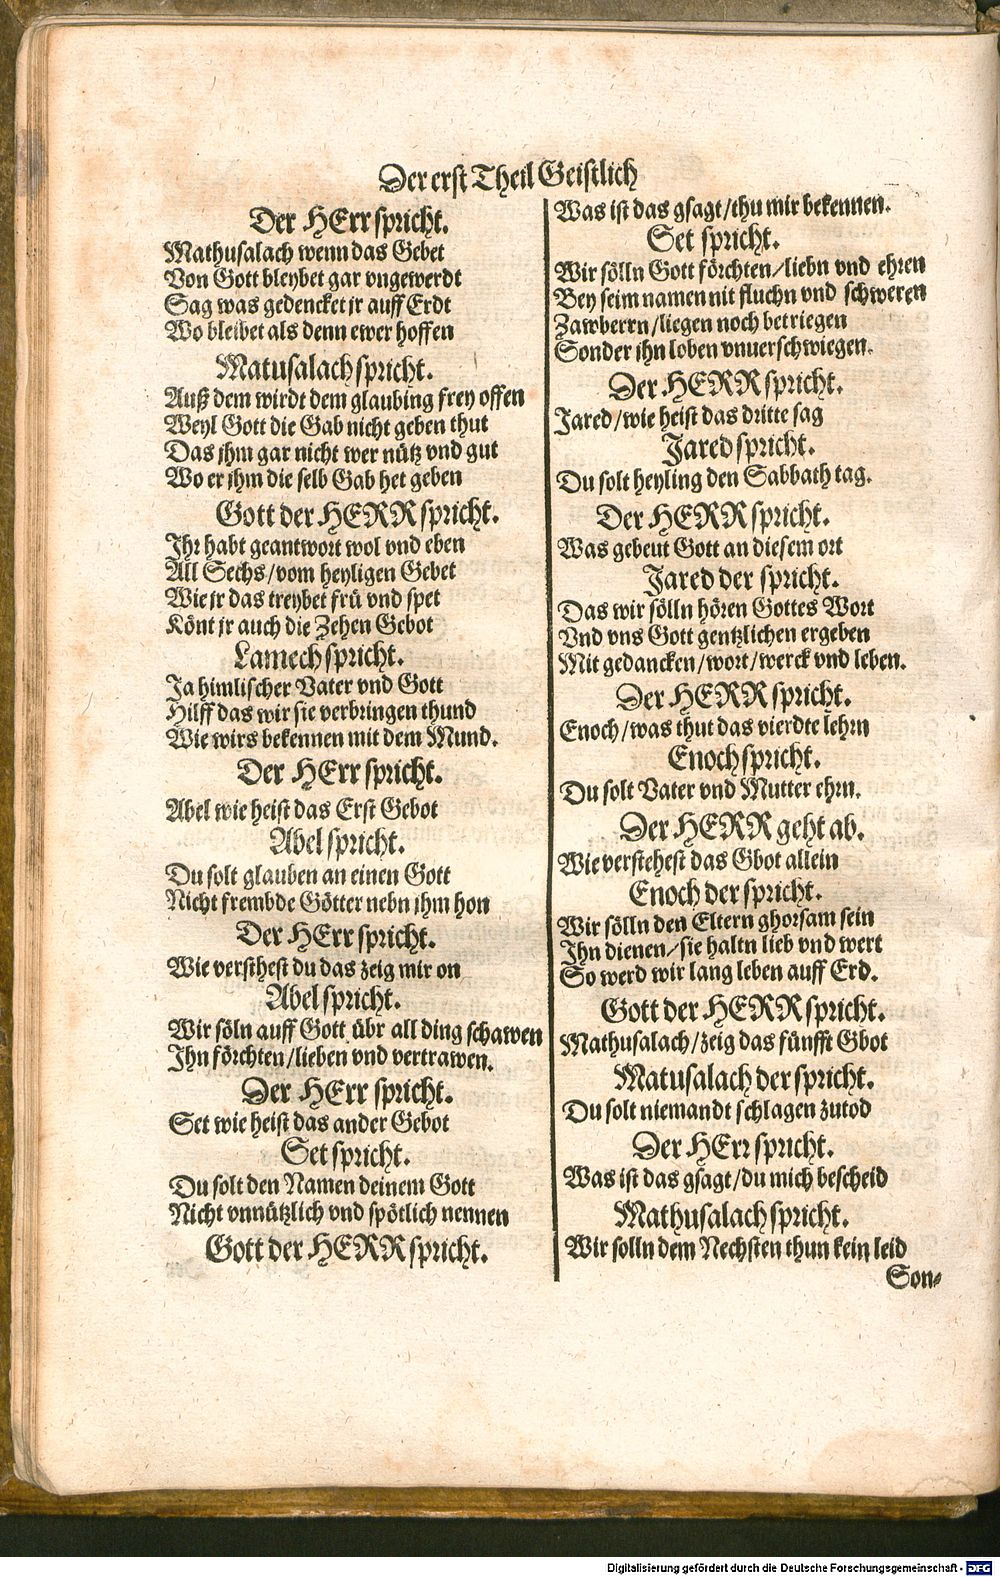 Der erst Theil Geistlich
Der HErr spricht.
Mathusalach wenn das Gebet
Von Gott bleybet gar vngewerdt
Sag was gedencket jr auff Erdt
Wo bleibet als denn ewer hoffen
Matusalach spricht.
Auß dem wirdt dem glaubing frey offen
Weyl Gott die Gab nicht geben thut
Das jhm gar nicht wer nütz vnd gut
Wo er jhm die selb Gab het geben
Gott der HERR spricht.
Jhr habt geantwort wol vnd eben
All Sechs/vom heyligen Gebet
Wie jr das treybet frü vnd spet
Könt jr auch die Zehen Gebot
Lamech spricht.
Ja himlischer Vater vnd Gott
Hilff das wir sie verbringen thund
Wie wirs bekennen mit dem Mund.
Der HErr spricht.
Abel wie heist das Erst Gebot
Abel spricht.
Du solt glauben an einen Gott
Nicht frembde Götter nebn jhm hon
Der HErr spricht.
Wie versthest du das zeig mir on
Abel spricht.
Wir söln auff Gott übr all ding schawen
Jhn förchten/lieben vnd vertrawen.
Der HErr spricht.
Set wie heist das ander Gebot
Set spricht.
Du solt den Namen deinem Gott
Nicht vnnützlich vnd spötlich nennen
Gott der HERR spricht.
Was ist das gsagt/thu mir bekennen.
Set spricht.
Wir sölln Gott förchten/liebn vnd ehren
Bey seim namen nit fluchn vnd schweren
Zawberrn/liegen noch betriegen
Sonder ihn loben vnuerschwiegen.
Der HERR spricht.
Jared/wie heist das dritte sag
Jared spricht.
Du solt heyling den Sabbath tag.
Der HERR spricht.
Was gebeut Gott an diesem ort
Jared der spricht.
Das wir sölln hören Gottes Wort
Vnd vns Gott gentzlichen ergeben
Mit gedancken/wort/werck vnd leben.
Der HERR spricht.
Enoch/was thut das vierdte lehrn
Enoch spricht.
Du solt Vater vnd Mutter ehrn.
Der HERR geht ab.
Wie verstehest das Gbot allein
Enoch der spricht.
Wir sölln den Eltern ghorsam sein
Jhn dienen/sie haltn lieb vnd wert
So werd wir lang leben auff Erd.
Gott der HERR spricht.
Mathusalach/zeig das fünfft Gbot
Matusalach der spricht.
Du solt niemandt schlagen zutod
Der HErr spricht.
Was ist das gsagt/du mich bescheid
Mathusalach spricht.
Wir solln dem Nechsten thun kein leid
Son-
Digitalisierung gefördert durch die Deutsche Forschungsgemeinschaft - DFG